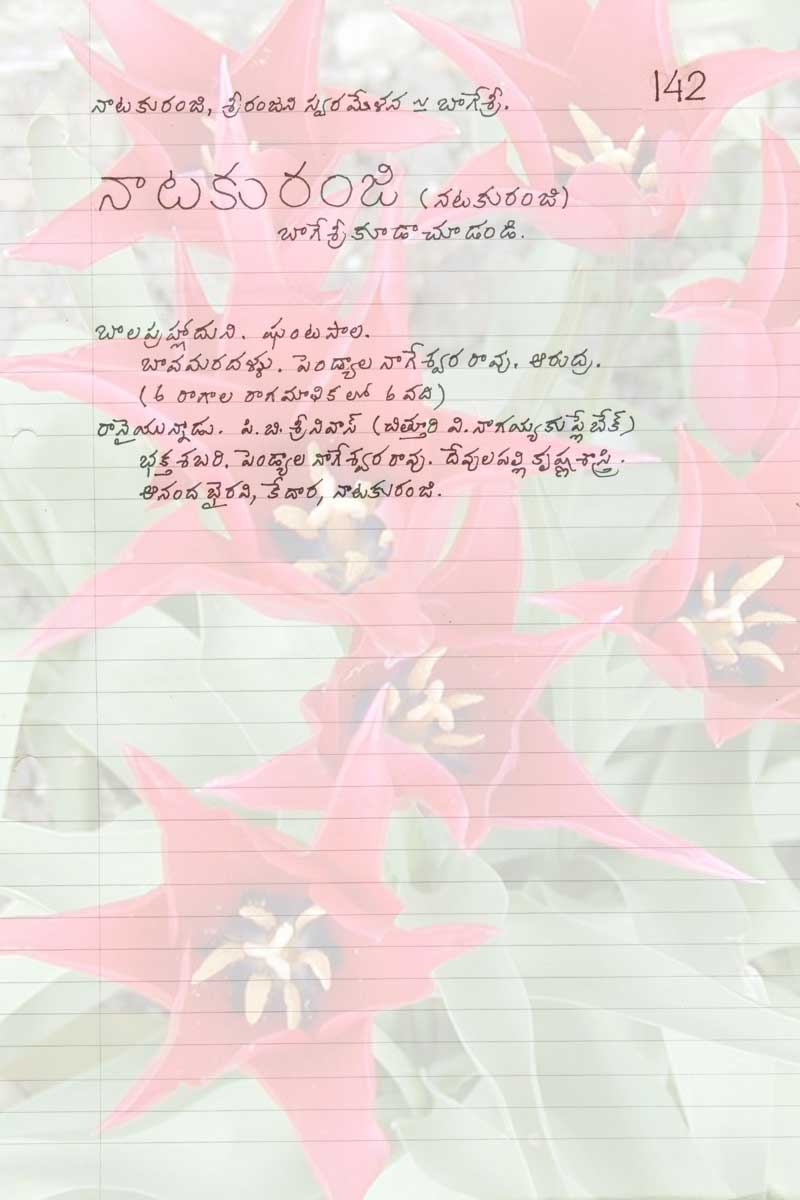 142
నాటకురంజి, శ్రీరంజని స్వరమేళన ≃ బాగేశ్రీ.
నాటకురంజి (నటకురంజి)
బాగేశ్రీ కూడా చూడండి.
బాలప్రహ్లాదుని. ఘంటసాల.
బావమరదళ్ళు. పెండ్యాల నాగేశ్వర రావు. ఆరుద్ర.
(6 రాగాల రాగమాలిక లో 6 వది)
రానైయున్నాడు. పి.బి. శ్రీనివాస్ (చిత్తూరి వి. నాగయ్యకు ప్లేబేక్)
భక్త శబరి. పెండ్యాల నాగేశ్వర రావు. దేవులపల్లి కృష్ణ శాస్త్రి.
ఆనంద భైరవి, కేదార, నాటకురంజి.